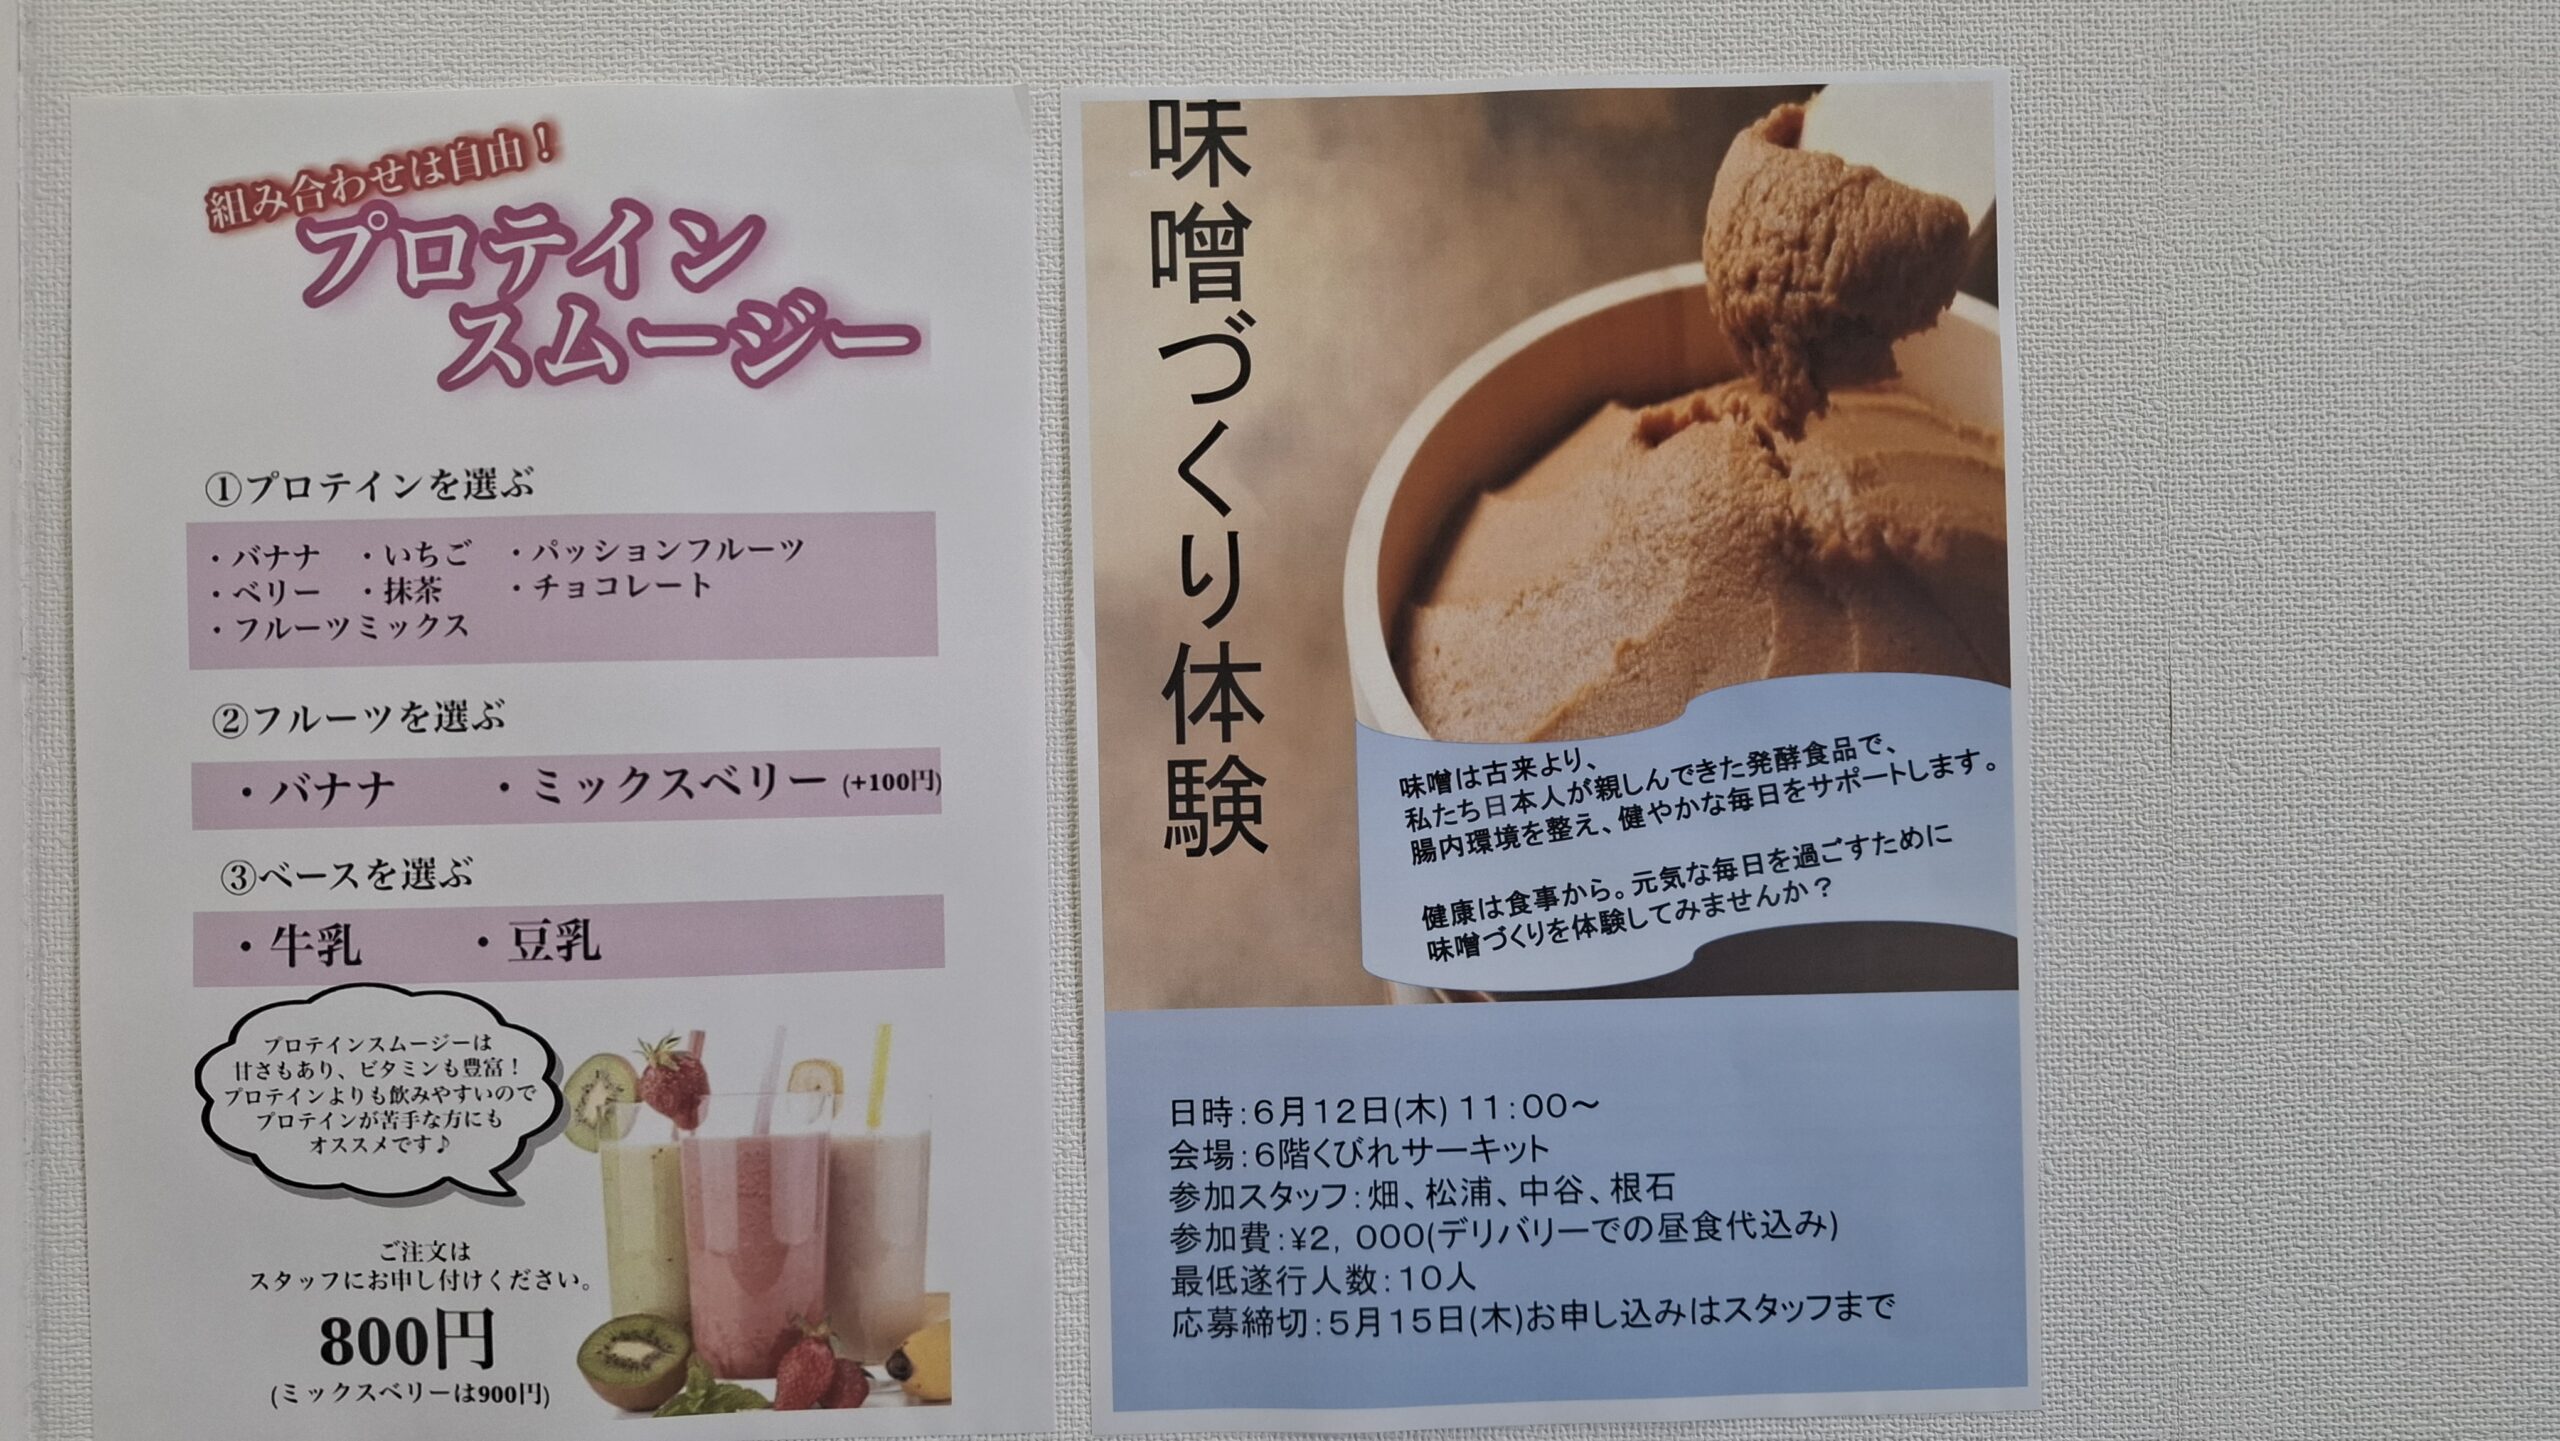 組み合わせは自由！
プロテイン
スムージー
①プロテインを選ぶ
・バナナ ・いちご ・パッションフルーツ
・ベリー ・抹茶 ・チョコレート
・フルーツミックス
②フルーツを選ぶ
・バナナ ・ミックスベリー (+100円)
③ベースを選ぶ
・牛乳 ・豆乳
プロテインスムージーは
甘さもあり、ビタミンも豊富！
プロテインよりも飲みやすいので
プロテインが苦手な方にも
オススメです♪
ご注文は
スタッフにお申し付けください。
800円
(ミックスベリーは900円)
味噌づくり体験
味噌は古来より、
私たち日本人が親しんできた発酵食品で、
腸内環境を整え、健やかな毎日をサポートします。
健康は食事から。元気な毎日を過ごすために
味噌づくりを体験してみませんか？
日時：６月１２日(木) １１：００～
会場：６階くびれサーキット
参加スタッフ：畑、松浦、中谷、根石
参加費：¥２，０００(デリバリーでの昼食代込み)
最低遂行人数：１０人
応募締切：５月１５日(木)お申し込みはスタッフまで